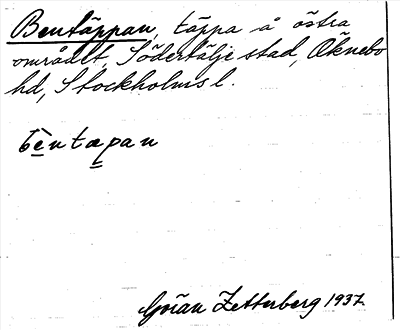 Bentäppan, täppa å östra
området, Södertälje stad, Öknebo
hd, Stockholms l.
bèntæpan
Göran Zetterberg 1937